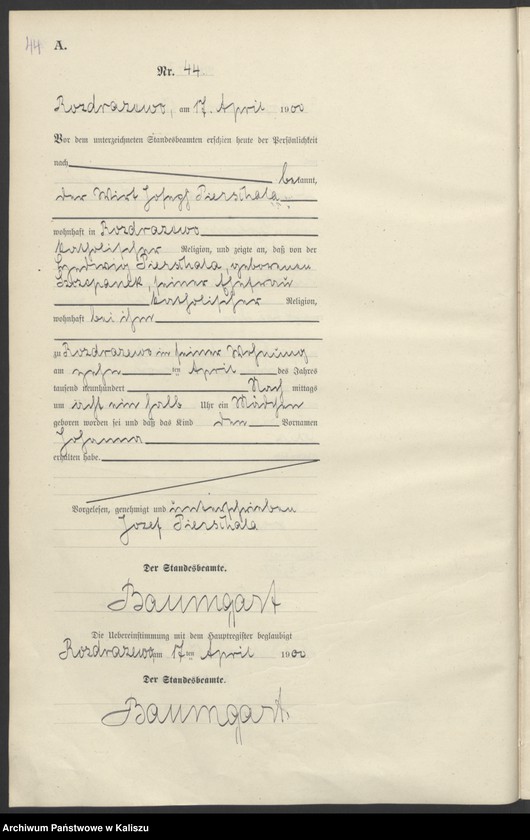 44 A.
Nr. 44
Rozdrazewo, am 17. April 1900
Vor dem unterzeichneten Standesbeamten erschien heute der Persönlichkeit
nach
bekannt,
der Wirt Josef Pierschala
wohnhaft in Rozdrazewo
katholischer Religion, und zeigte an, daß von der
Hedwig Pierschala, geborenen
Szczepanek, seiner Ehefrau
katholischer Religion,
wohnhaft bei ihm
zu Rozdrazewo in seiner Wohnung
am zehn ten April des Jahres
tausend neunhundert Nach mittags
um acht ein halb Uhr ein Mädchen
geboren worden sei und daß das Kind den Vornamen
Johanna
erhalten habe.
Vorgelesen, genehmigt und unterschrieben
Jozef Pierschala
Der Standesbeamte.
Baumgart
Die Uebereinstimmung mit dem Hauptregister beglaubigt
Rozdrazewo am 17 ten April 1900
Der Standesbeamte.
Baumgart.
Archiwum Państwowe w Kaliszu